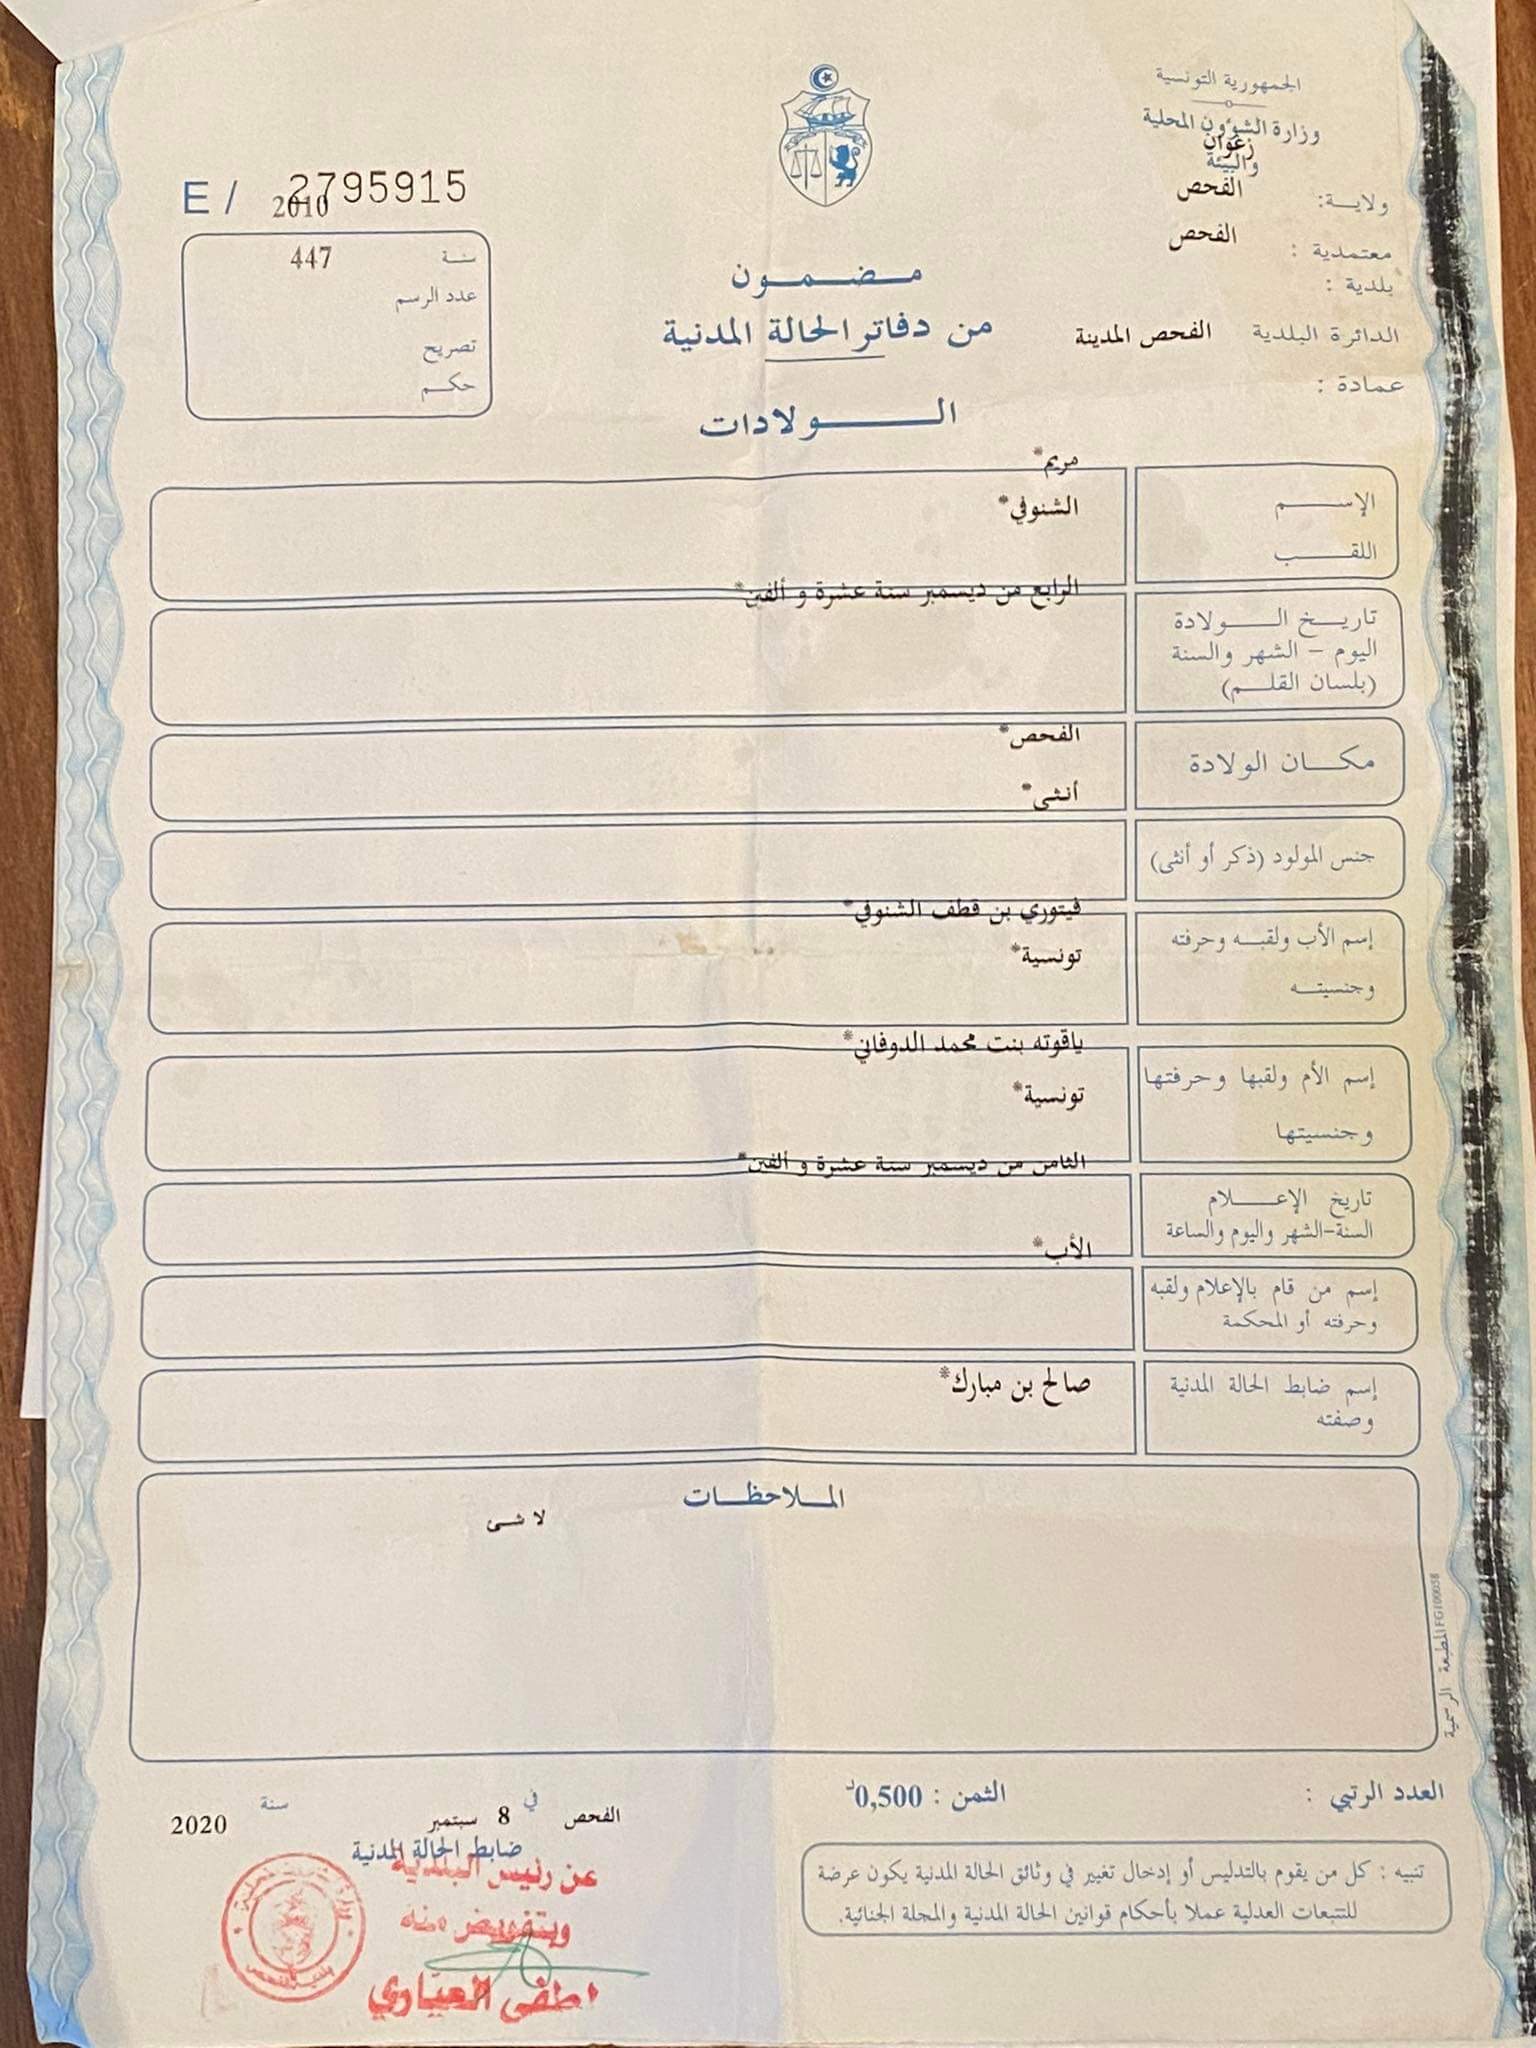 الجمهورية التونسية
وزارة الشؤون المحلية
والبيئة
زغوان
ولاية:
الفحص
معتمدية :
الفحص
بلدية :
الدائرة البلدية الفحص المدينة
عمادة :
E / 2795915
2010
سنة
447
عدد الرسم
تصريح
حكم
مضمون
من دفاتر الحالة المدنية
الولادات
مريم*
الإسم
الشنوفي*
اللقب
الرابع من ديسمبر سنة عشرة و ألفين*
تاريخ الولادة
اليوم – الشهر والسنة
(بلسان القلم)
الفحص*
مكان الولادة
أنثى*
جنس المولود (ذكر أو أنثى)
فيتوري بن قطف الشنوفي*
إسم الأب ولقبه وحرفته
تونسية*
وجنسيته
ياقوته بنت محمد الدوفاني*
إسم الأم ولقبها وحرفتها
تونسية*
وجنسيتها
الثامن من ديسمبر سنة عشرة و ألفين*
تاريخ الإعلام
السنة-الشهر واليوم والساعة
الأب*
إسم من قام بالإعلام ولقبه
وحرفته أو المحكمة
صالح بن مبارك*
إسم ضابط الحالة المدنية
وصفته
الملاحظات
لا شئ
المطبعة الرسمية FG100058
العدد الرتبي :
الثمن : 0,500د
الفحص في 8 سبتمبر سنة 2020
ضابط الحالة المدنية
عن رئيس البلدية
وبتفويض منه
لطفي العياري
تنبيه : كل من يقوم بالتدليس أو إدخال تغيير في وثائق الحالة المدنية يكون عرضة
للتتبعات العدلية عملا بأحكام قوانين الحالة المدنية والمجلة الجنائية.